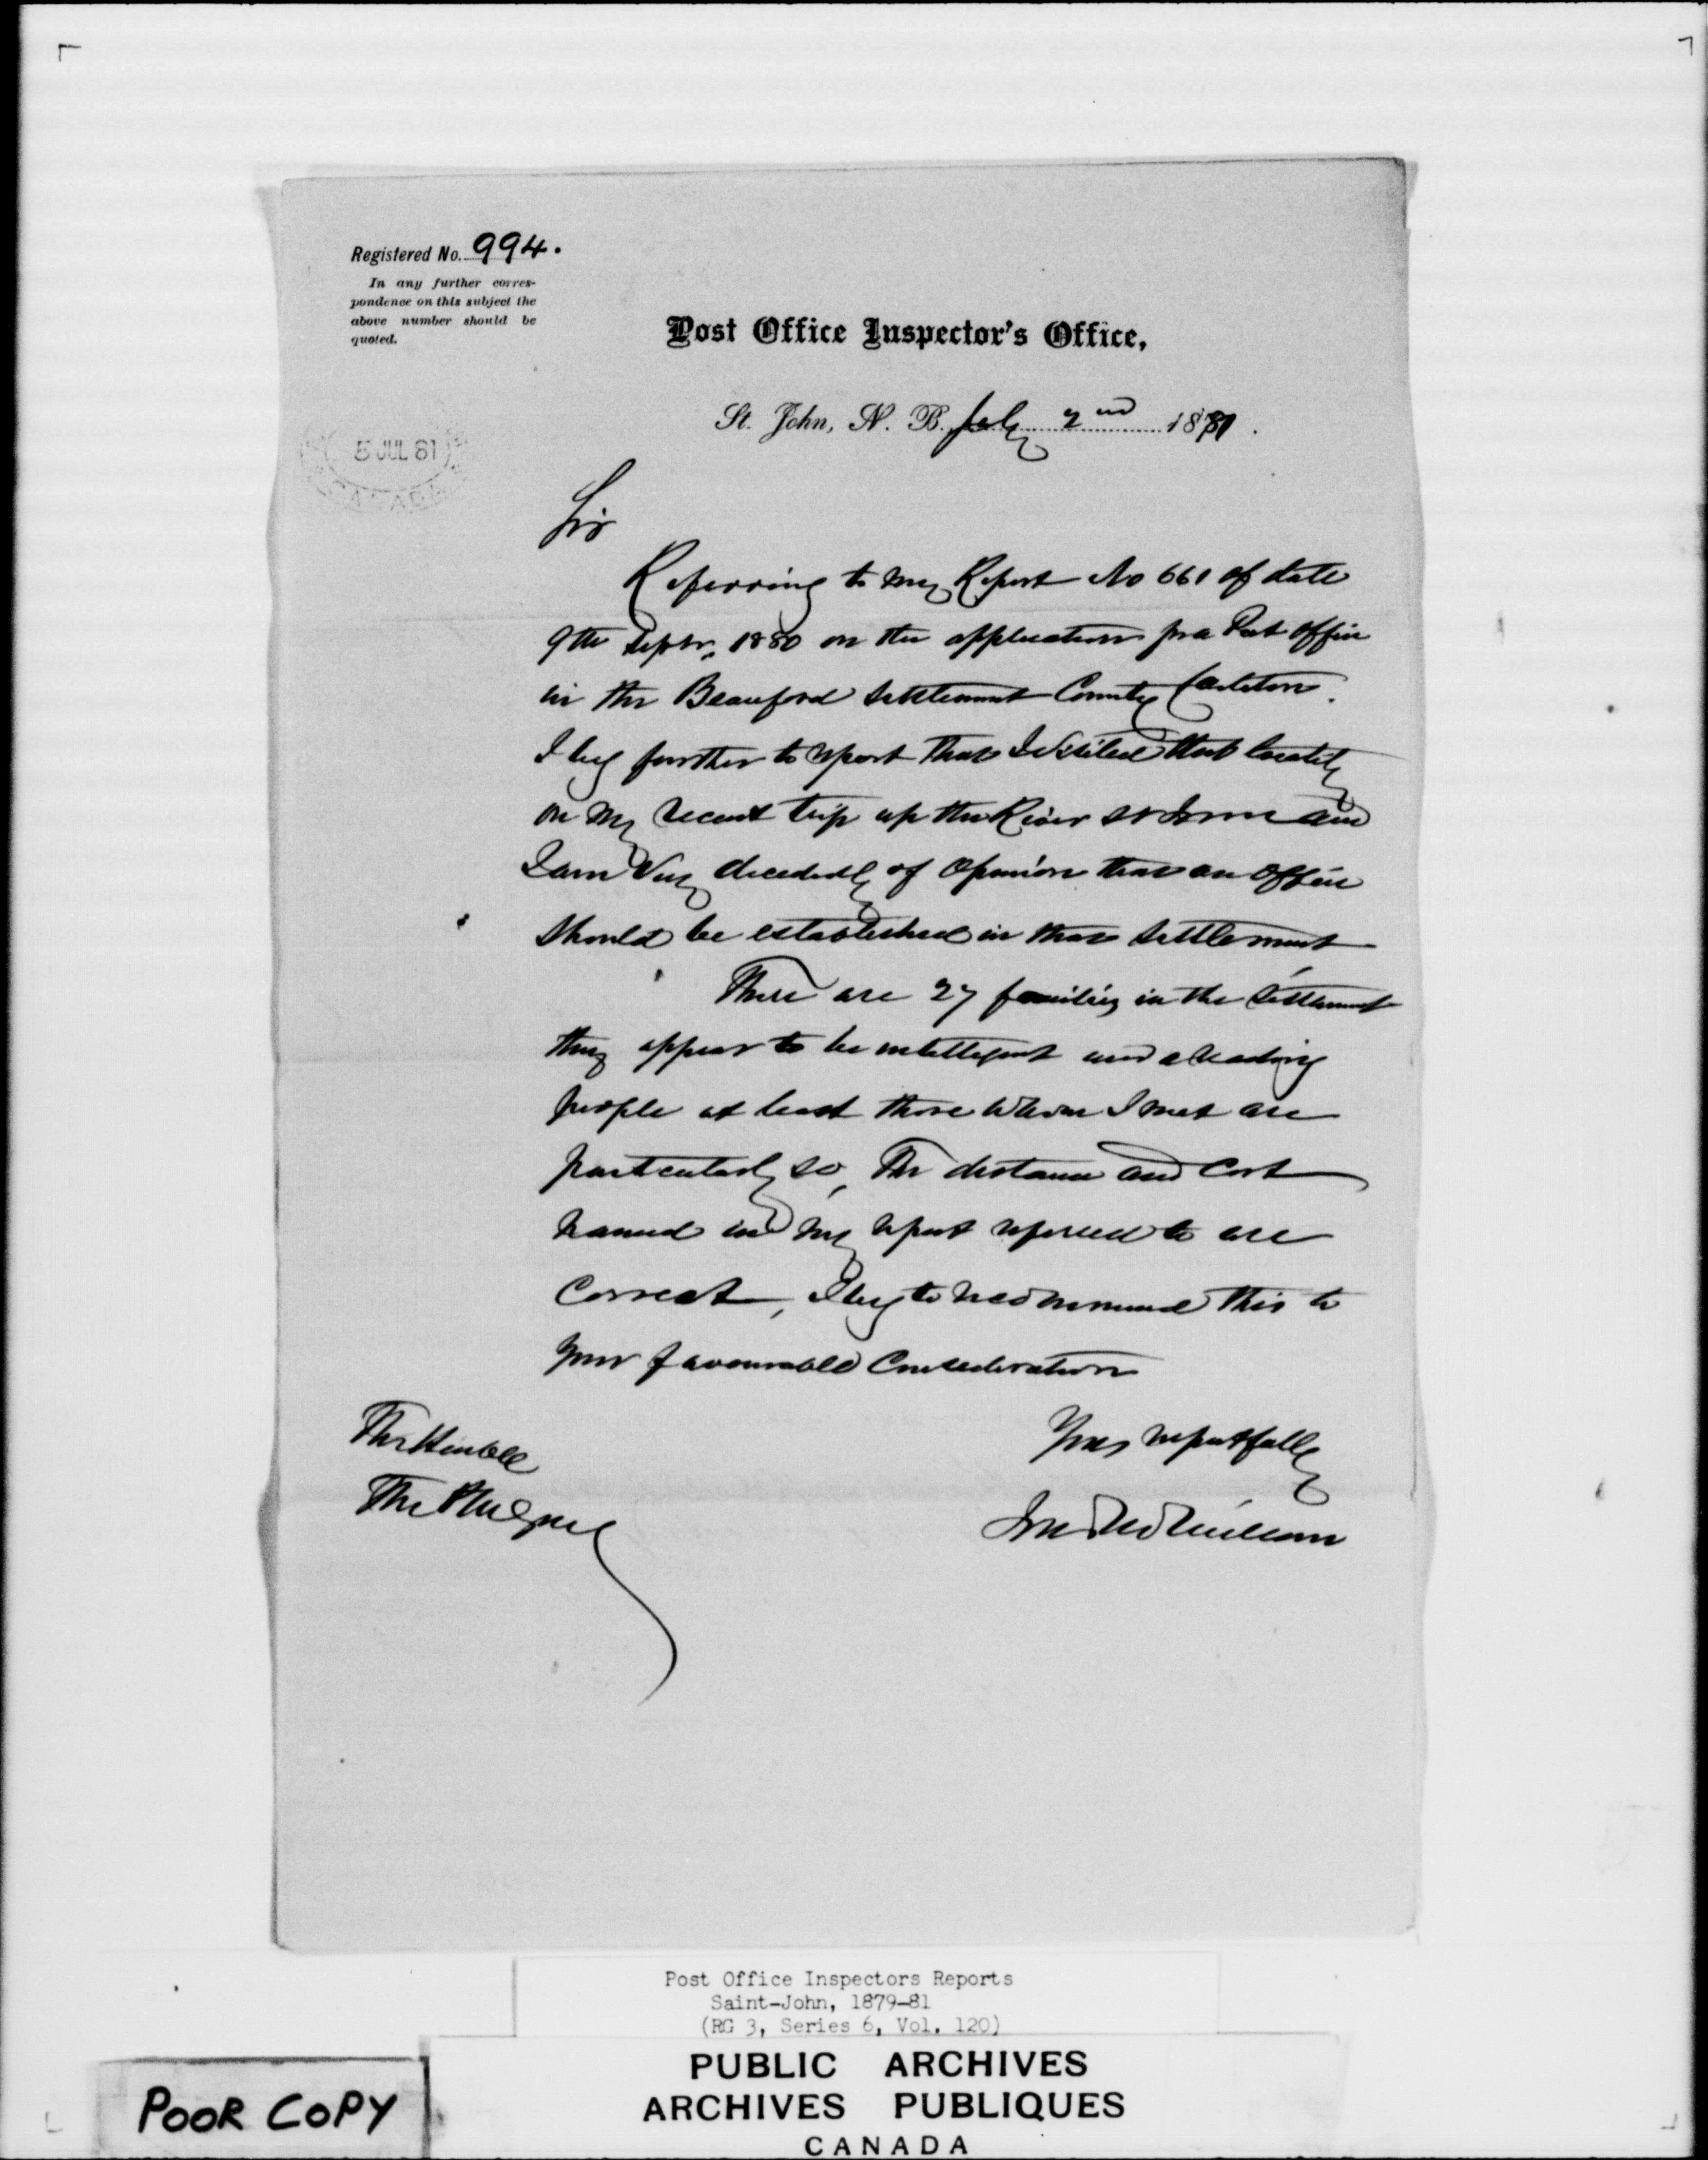 Registered No. 994.
In any further corres-
pondence on this subject the
above number should be
quoted.
Post Office Inspector's Office,
St. John, N. B. July 2nd 1881.
5 JUL 81
CANADA
Sir
Referring to my Report No 661 of date
9th Septr. 1880 on the application for a Post office
in the Beauford Settlement County Carleton.
I beg further to report that I visited that locality
on my recent trip up the River St John and
I am Very decidedly of Opinion that an Office
Should be established in that Settlement
There are 27 families in the Settlement
they appear to be intelligent and a reading
people at least those whom I met are
particularly so, The distance and Cost
named in my report referred to are
Correct, I beg to recommend this to
your favourable Consideration
Yours respectfully
The Honble
The P M General
Jno McMillan
Post Office Inspectors Reports
Saint-John, 1879-81
(RG 3, Series 6, Vol. 120)
PUBLIC ARCHIVES
ARCHIVES PUBLIQUES
CANADA
POOR COPY